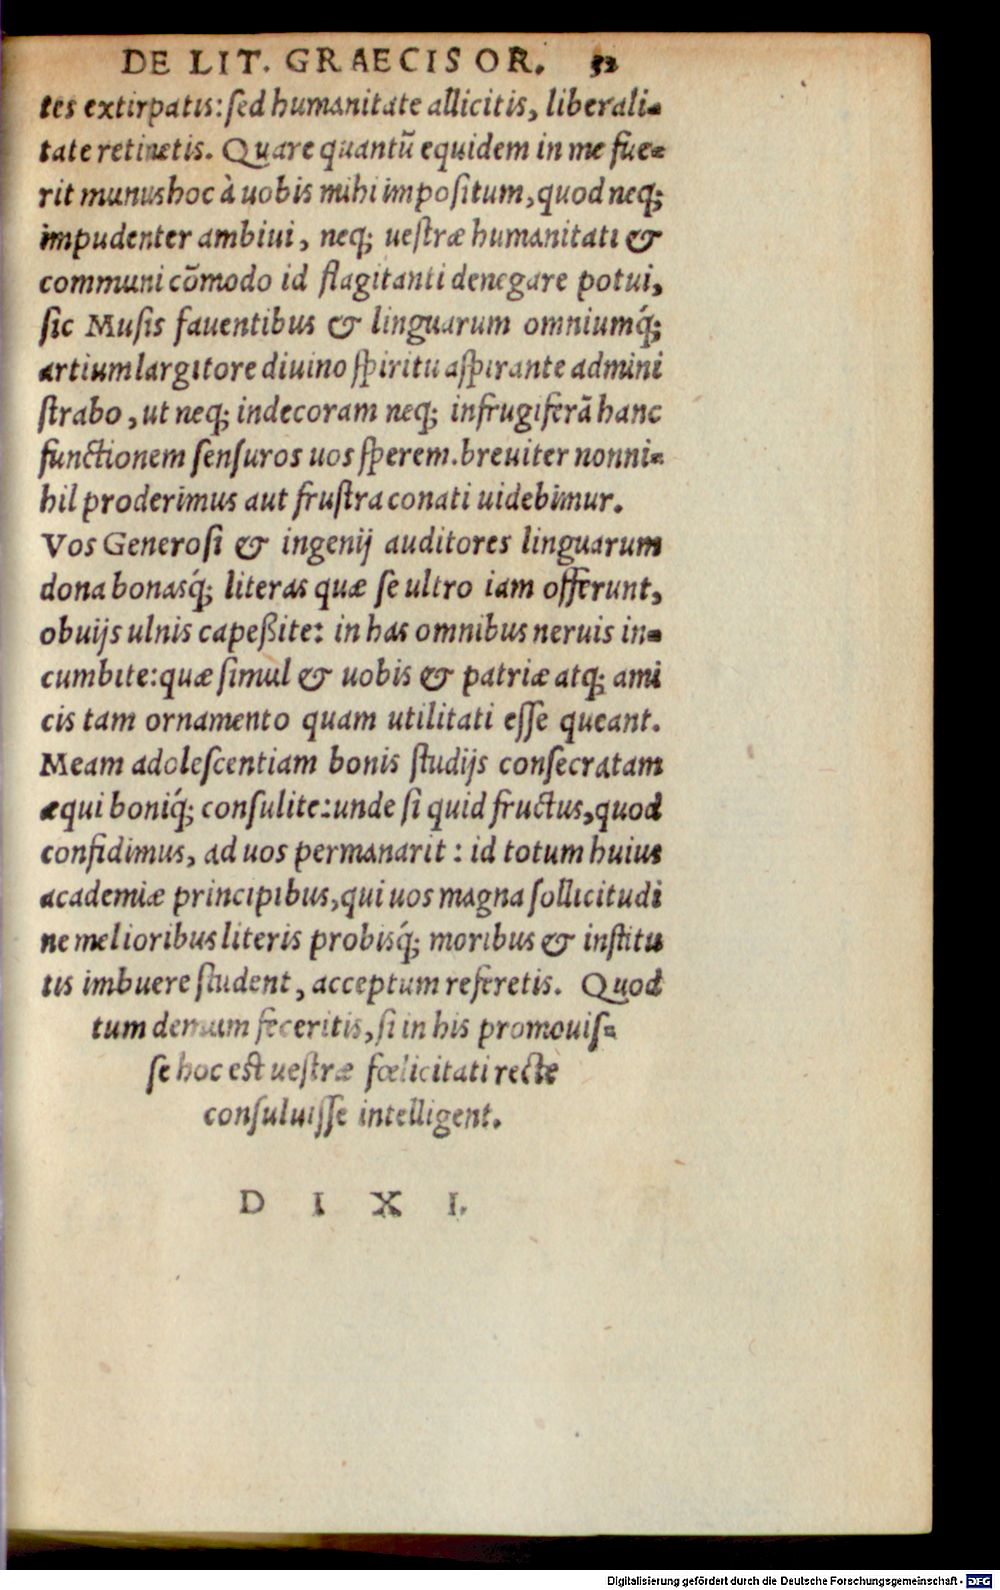 DE LIT. GRAECIS OR. 32
tes extirpatis: ſed humanitate allicitis, liberali-
tate retinetis. Quare quantũ equidem in me fue-
rit munus hoc à uobis mihi impoſitum, quod neq;
impudenter ambiui, neq; ueſtræ humanitati &
communi cõmodo id flagitanti denegare potui,
ſic Muſis fauentibus & linguarum omniumq́;
artium largitore diuino ſpiritu aſpirante admini
ſtrabo, ut neq; indecoram neq; infrugiferã hanc
functionem ſenſuros uos ſperem. breuiter nonni-
hil proderimus aut fruſtra conati uidebimur.
Vos Generoſi & ingenij auditores linguarum
dona bonasq́; literas quæ ſe ultro iam offerunt,
obuijs ulnis capeßite: in has omnibus neruis in-
cumbite: quæ ſimul & uobis & patriæ atq; ami
cis tam ornamento quam utilitati eſſe queant.
Meam adoleſcentiam bonis ſtudijs conſecratam
æqui boniq́; conſulite: unde ſi quid fructus, quod
confidimus, ad uos permanarit : id totum huius
academiæ principibus, qui uos magna ſollicitudi
ne melioribus literis probisq́; moribus & inſtitu
tis imbuere ſtudent, acceptum referetis. Quod
tum demum feceritis, ſi in his promouiſ-
ſe hoc eſt ueſtræ fœlicitati recte
conſuluiſſe intelligent.
D I X I.
Digitalisierung gefördert durch die Deutsche Forschungsgemeinschaft - DFG